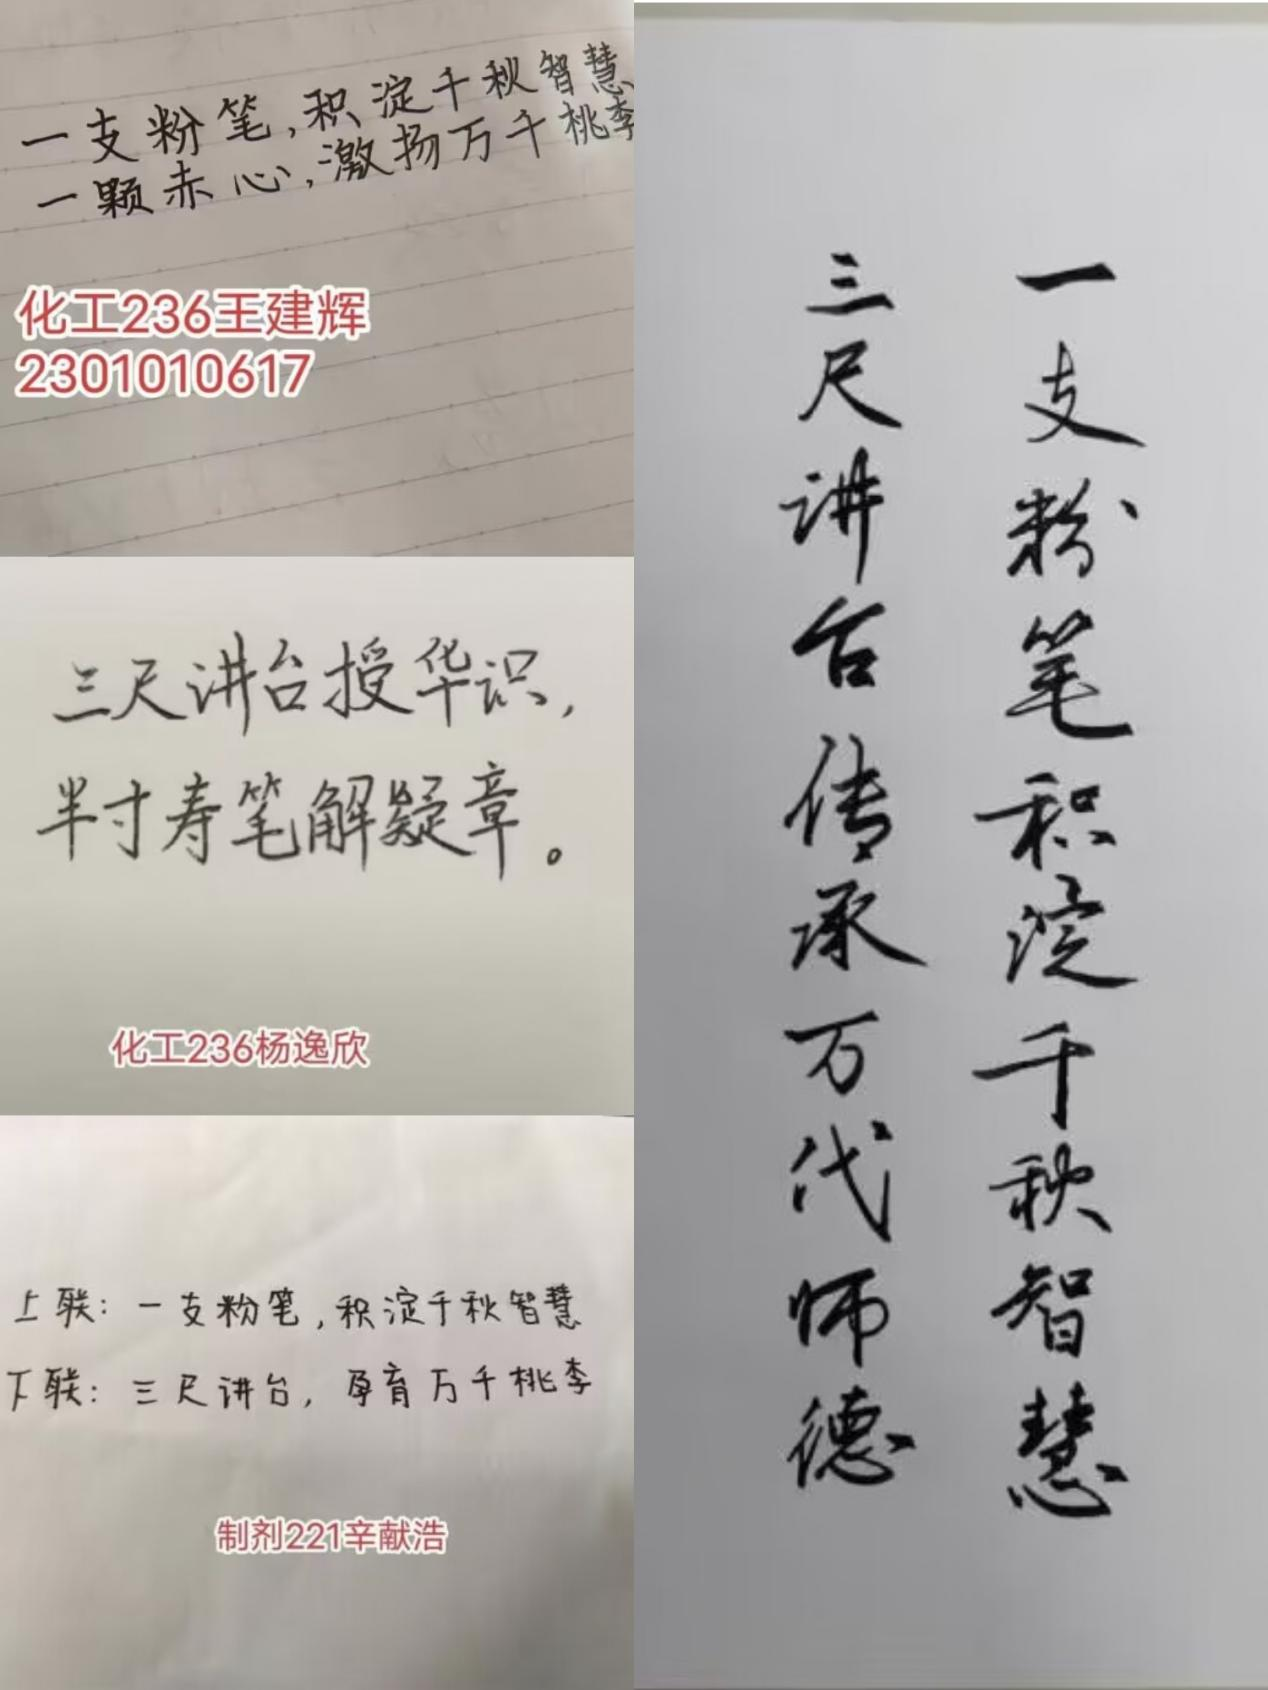 一支粉笔,积淀千秋智慧
一颗赤心,激扬万千桃李
化工236王建辉
2301010617
三尺讲台授华识,
半寸寿笔解疑章。
化工236杨逸欣
上联:一支粉笔,积淀千秋智慧
下联:三尺讲台,孕育万千桃李
制剂221辛献浩
一支粉笔积淀千秋智慧
三尺讲台传承万代师德